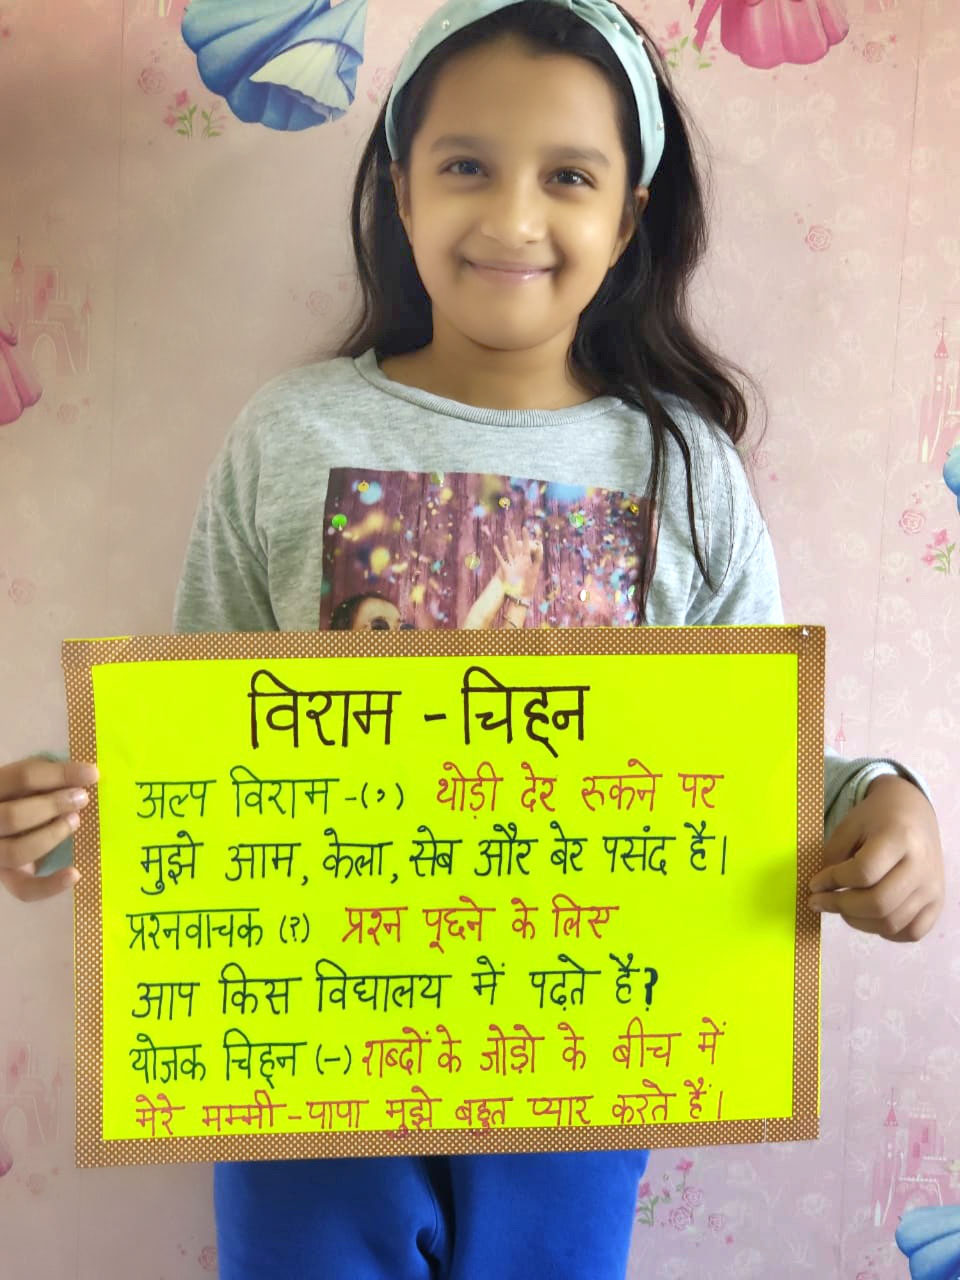 विराम - चिह्न
अल्प विराम -(,) थोड़ी देर रुकने पर
मुझे आम, केला, सेब और बेर पसंद है।
प्रश्नवाचक (?) प्रश्न पूछने के लिए
आप किस विद्यालय में पढ़ते है?
योजक चिह्न (-) शब्दों के जोड़ो के बीच में
मेरे मम्मी - पापा मुझे बहुत प्यार करते हैं।